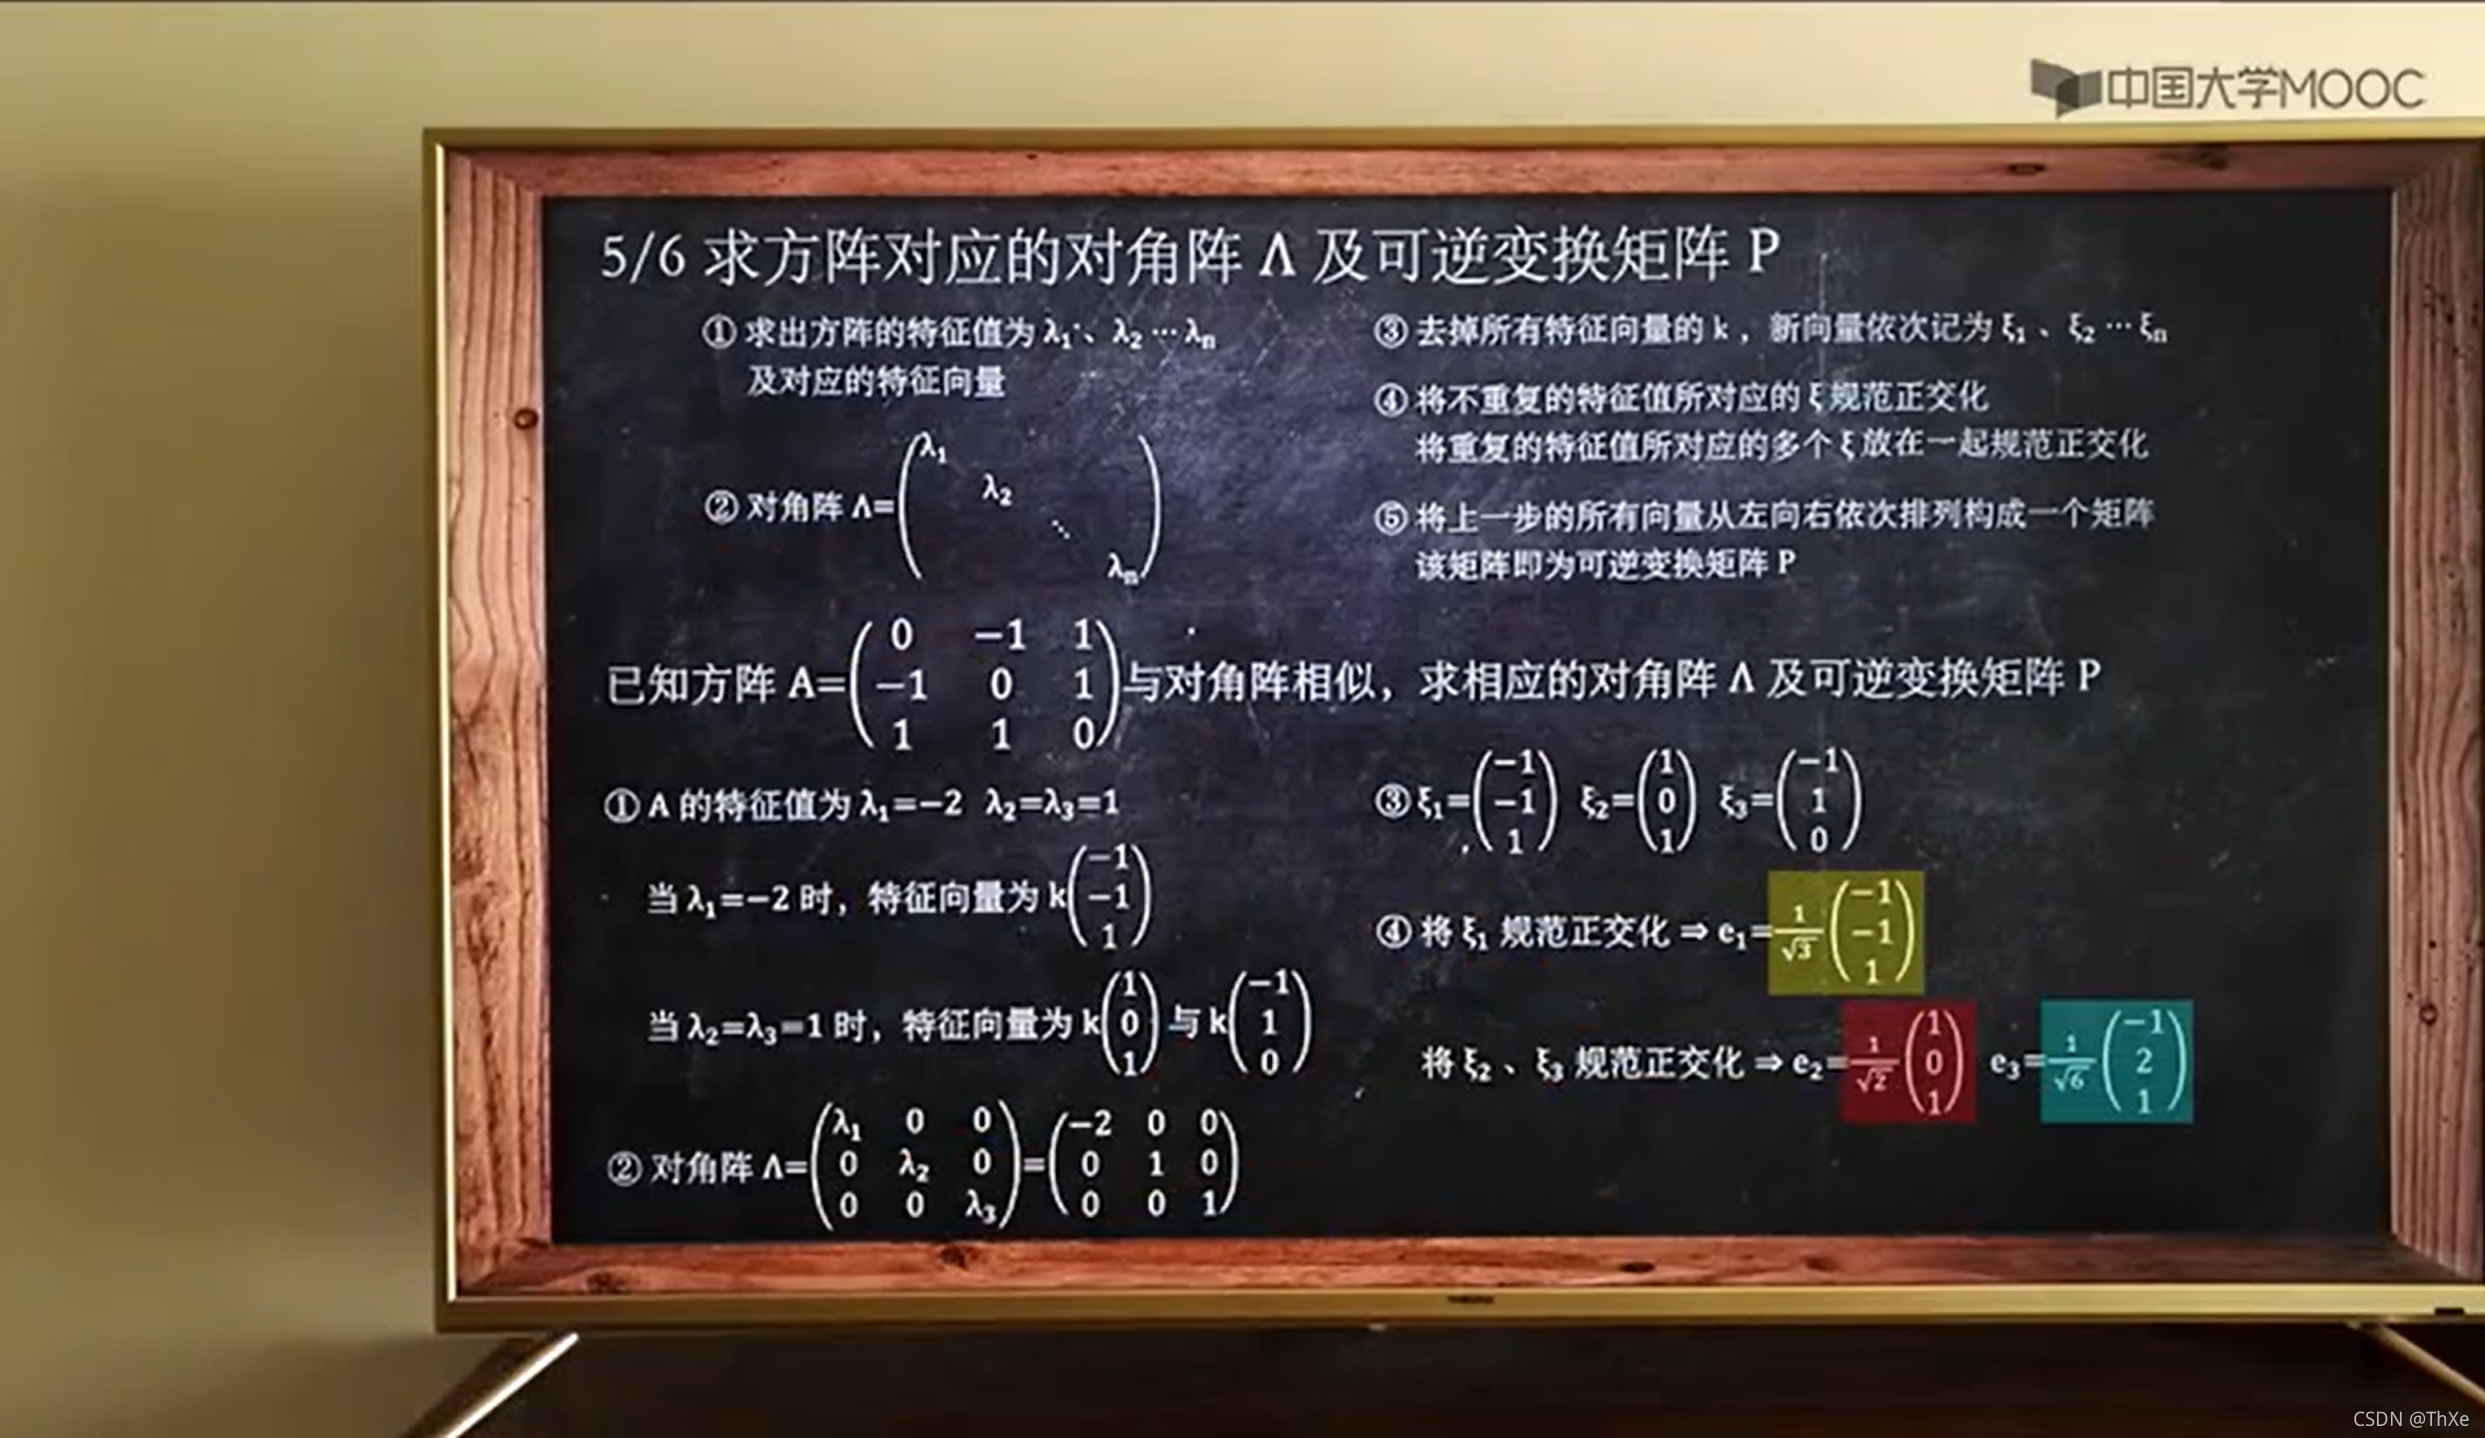 中国大学MOOC
5/6 求方阵对应的对角阵 Λ 及可逆变换矩阵 P
① 求出方阵的特征值为 λ₁、λ₂ ⋯ λₙ
及对应的特征向量
② 对角阵 Λ=
λ₁
λ₂
⋱
λₙ
③ 去掉所有特征向量的 k，新向量依次记为 ξ₁、ξ₂ ⋯ ξₙ
④ 将不重复的特征值所对应的 ξ 规范正交化
将重复的特征值所对应的多个 ξ 放在一起规范正交化
⑤ 将上一步的所有向量从左向右依次排列构成一个矩阵
该矩阵即为可逆变换矩阵 P
已知方阵 A=(0 −1 1; −1 0 1; 1 1 0)与对角阵相似，求相应的对角阵 Λ 及可逆变换矩阵 P
① A 的特征值为 λ₁=−2 λ₂=λ₃=1
当 λ₁=−2 时，特征向量为 k(−1; −1; 1)
当 λ₂=λ₃=1 时，特征向量为 k(1; 0; 1) 与 k(−1; 1; 0)
② 对角阵 Λ=(λ₁ 0 0; 0 λ₂ 0; 0 0 λ₃)=(−2 0 0; 0 1 0; 0 0 1)
③ ξ₁=(−1; −1; 1) ξ₂=(1; 0; 1) ξ₃=(−1; 1; 0)
④ 将 ξ₁ 规范正交化 ⇒ e₁=1/√3(−1; −1; 1)
将 ξ₂、ξ₃ 规范正交化 ⇒ e₂=1/√2(1; 0; 1) e₃=1/√6(−1; 2; 1)
CSDN @ThXe